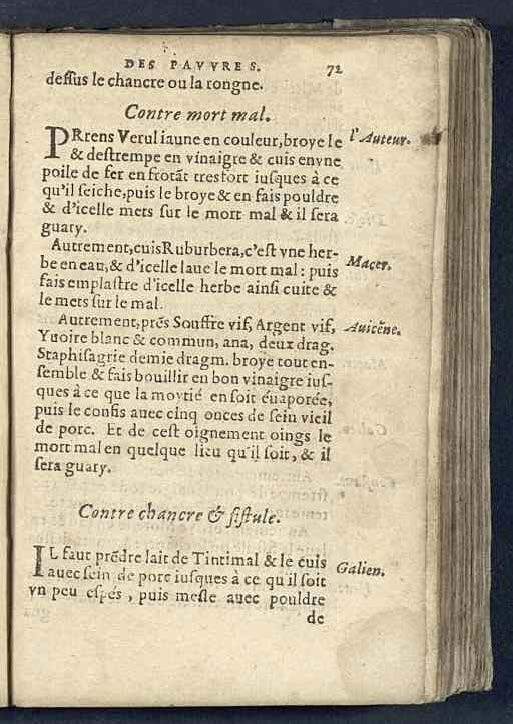 DES PAVVRES. 72
dessus le chancre ou la rongne.
Contre mort mal.
PRrens Verul iaune en couleur, broye le l'Auteur.
& destrempe en vinaigre & cuis en vne
poile de fer en frotãt tresfort iusques à ce
qu'il seiche, puis le broye & en fais pouldre
& d'icelle mets sur le mort mal & il sera
guary.
Autrement, cuis Ruburbera, c'est vne her-
be en eau, & d'icelle laue le mort mal : puis Macer.
fais emplastre d'icelle herbe ainsi cuite &
le mets sur le mal.
Autrement, prés Souffre vif, Argent vif, Auicẽne.
Yuoire blanc & commun, ana, deux drag.
Staphisagrie demie dragm. broye tout en-
semble & fais bouillir en bon vinaigre ius-
ques à ce que la moytié en soit éuaporée,
puis le confis auec cinq onces de sein vieil
de porc. Et de cest oignement oings le
mort mal en quelque lieu qu'il soit, & il
sera guary.
Contre chancre & fistule.
IL faut prẽdre lait de Tintimal & le cuis
auec sein de porc iusques à ce qu il soit Galien.
vn peu espés, puis mesle auec pouldre
de